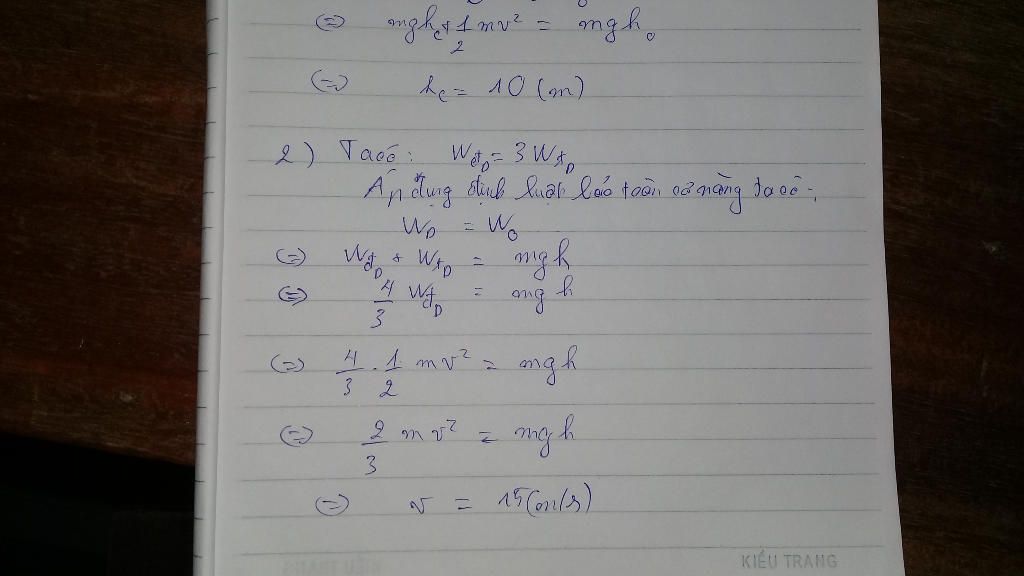 (=) mgh_c + 1/2 mv² = mgh_o
(=) h_c = 10 (m)
2) Ta có: Wđ_D = 3 Wt_D
Áp dụng định luật bảo toàn cơ năng ta có:
W_D = W_O
(=) Wđ_D + Wt_D = mgh
(=) 4/3 Wđ_D = mgh
(=) 4/3 . 1/2 mv² = mgh
(=) 2/3 mv² = mgh
(=) v = 15 (m/s)
KIỀU TRANG